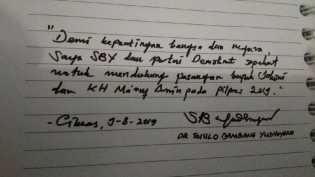 "Demi kepentingan bangsa dan negara,
Saya SBY dan partai Demokrat sepakat
untuk mendukung pasangan bapak Jokowi
dan KH Ma'ruf Amin pada pilpres 2019."
- Cikeas, 9-8-2019
DR SUSILO BAMBANG YUDHOYONO